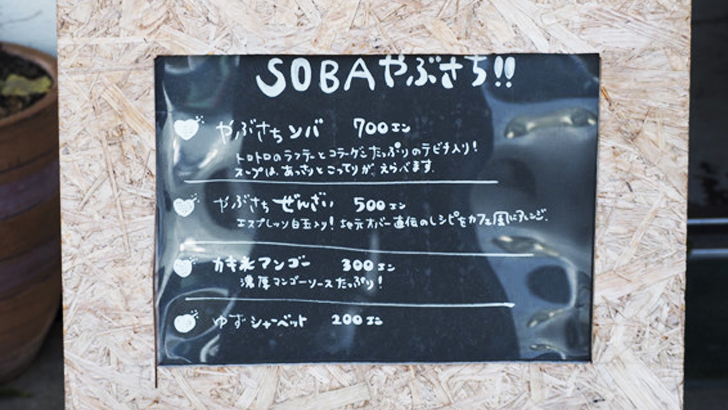 SOBAやぶさち!!
やぶさちソバ 700エン
トロトロのランテーとコラーゲンたっぷりのテビチ入り!
スープは、あっさりとこってりが、えらべます.
やぶさちぜんざい 500エン
エスプレッソ白玉入り!地元オバー直伝のレシピをカフェ風にアレンジ.
カキ氷マンゴー 300エン
濃厚マンゴーソースたっぷり!
ゆずシャーベット 200エン